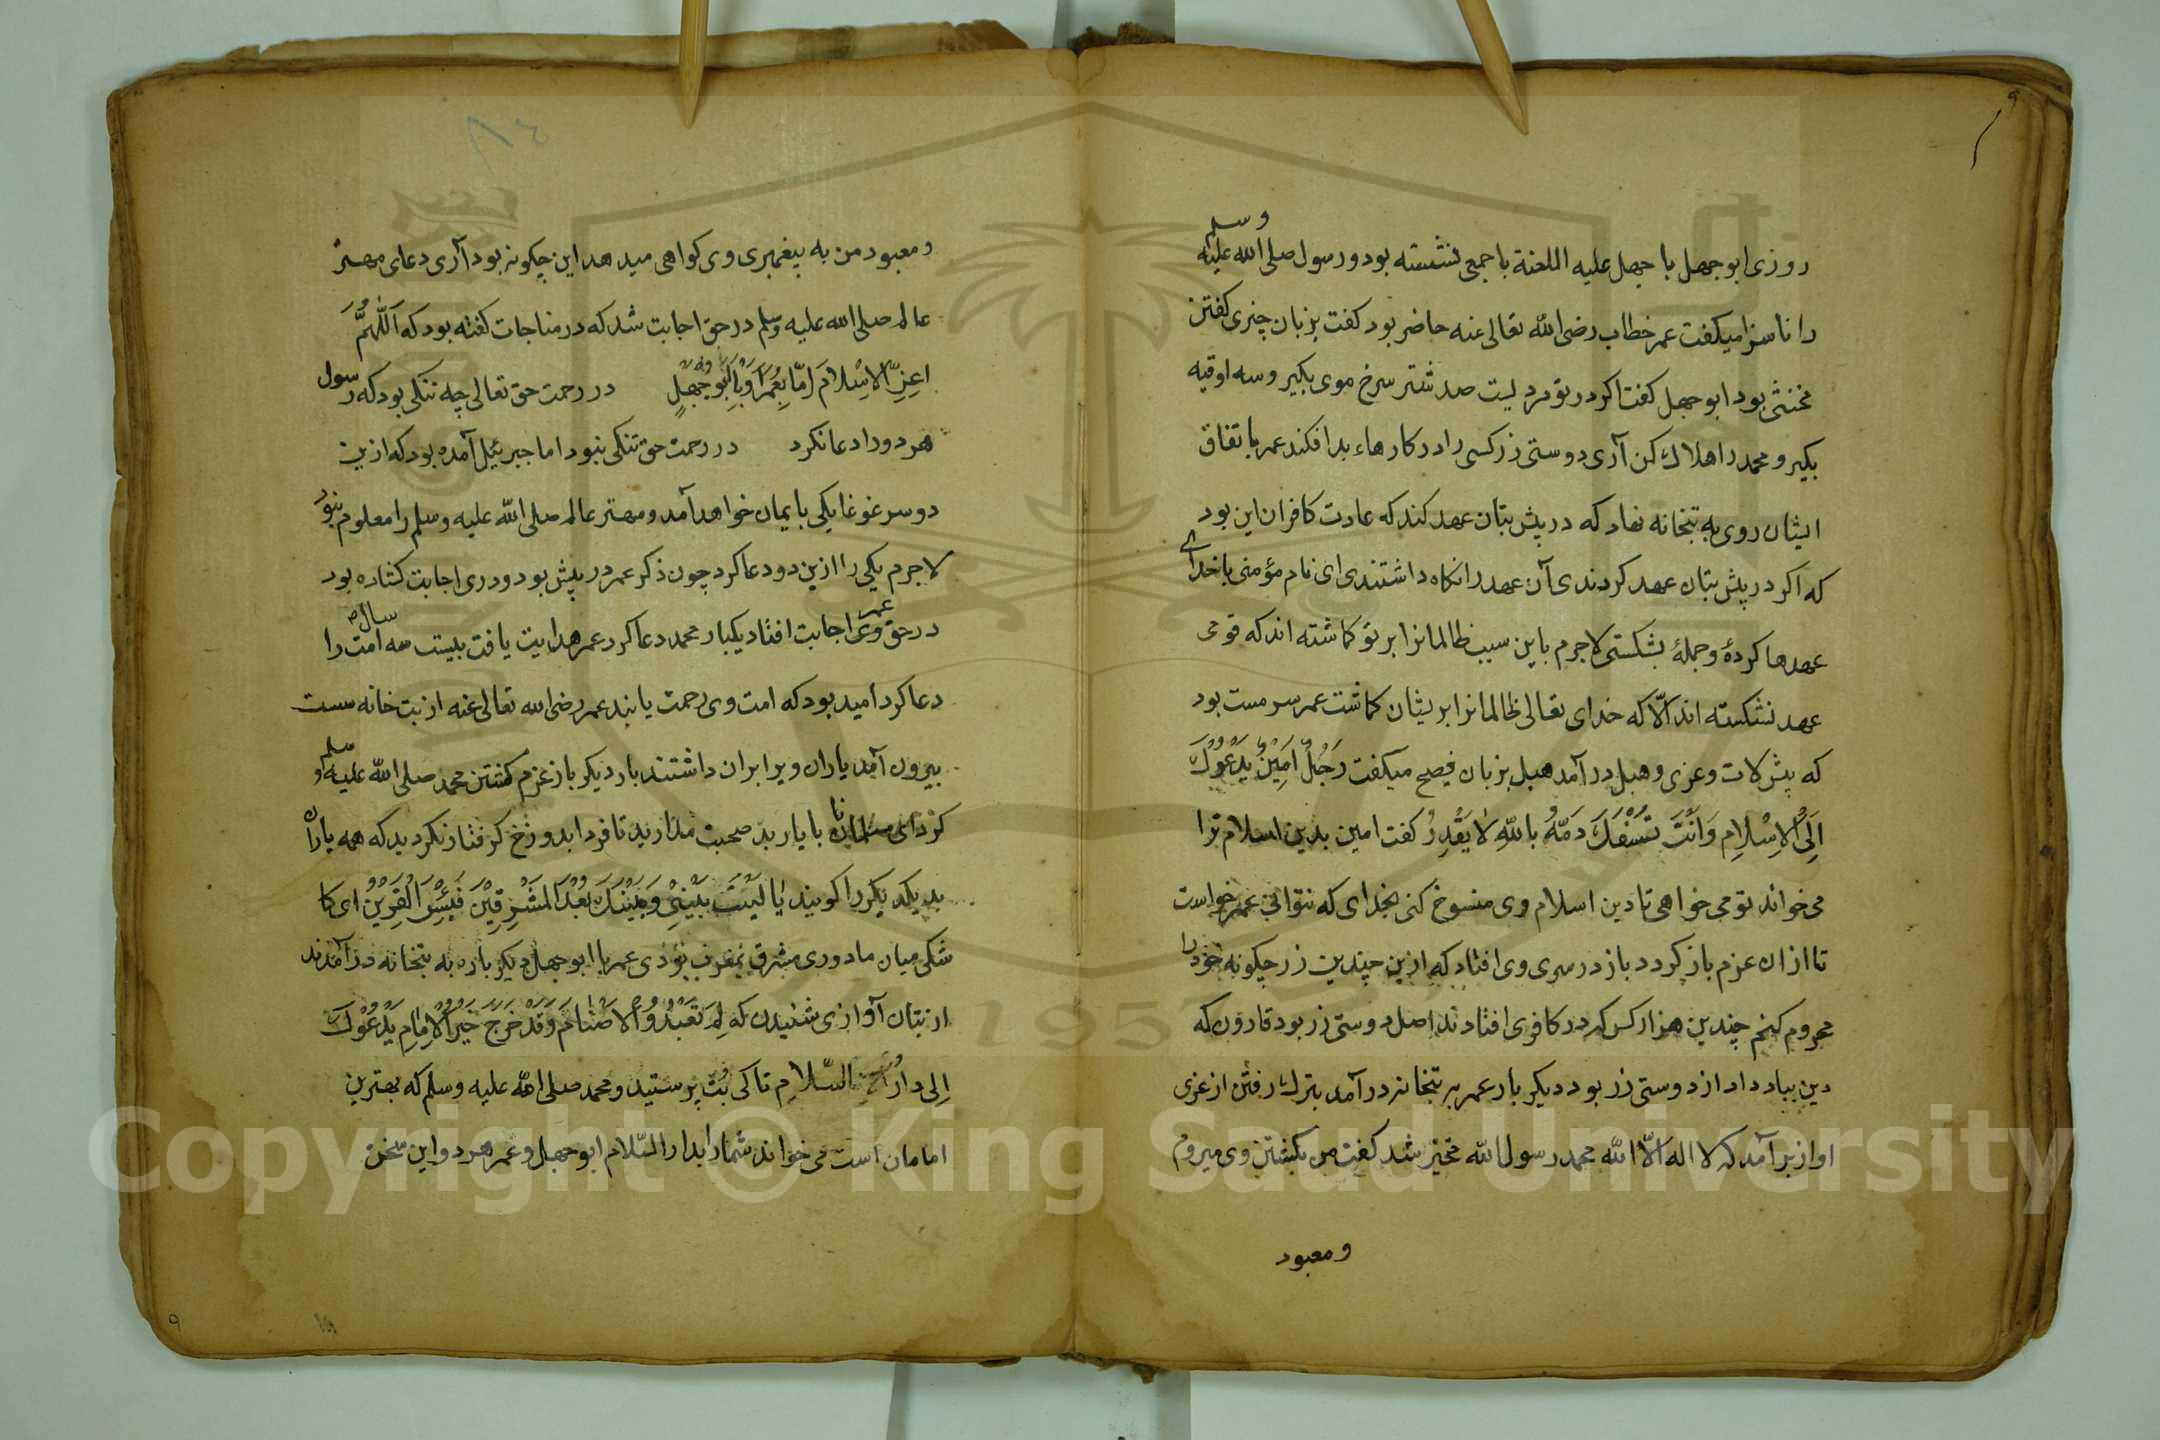 روزی ابو جهل با جهل علیه اللعنة با جمعی نشسته بود و رسول صلی الله علیه وسلم
را ناسزا میکفت عمر خطاب رضی الله تعالی عنه حاضر بود کفت بزبان چیزی کفتن
مخنثی بود ابو جهل کفت اکر در تو مردیست صد شتر سرخ موی بکیر و سه اوقیه
بکیر و محمد را هلاك کن آری دوستی زر کسی را در کارهاء بد افکند عمر باتفاق
ایشان روی به بتخانه نهاد که در پیش بتان عهد کند که عادت کافران این بود
که اکر در پیش بتان عهد کردندی آن عهد را نکاه داشتندی ای نام مؤمنی با خدای
عهدها کردهٔ و جملهٔ بشکستی لاجرم باین سبب ظالمانرا بر تو کماشته اند که قومی
عهد نشکسته اند الّا که خدای تعالی ظالمانرا بریشان کماشت عمر سرمست بود
که پیش لات و عزی و هبل در آمد هبل بزبان فصیح میکفت رَجُلٌ اَمِیْنٌ یَدْعُوْكَ
اِلَی الْاِسْلَامِ وَاَنْتَ تَسْفَكَ دَمَّهُ باللّٰهِ لَا یَقْدِرُ کفت امین بدین اسلام ترا
می خواند تو می خواهی تا دین اسلام وی منسوخ کنی بخدای که نتوانی عمر خواست
تا ازان عزم باز کردد باز در سری وی افتاد که ازین چندین زر چکونه خود را
محروم کنم چندین هزار کس که در کافری افتادند اصل دوستی زر بود قارون که
دین بباد داد از دوستی زر بود دیکر بار عمر به بتخانه در آمد بترك رفتن از عزی
اواز بر آمد که لا اله الّا اللّٰه محمد رسول اللّٰه متحیر شد کفت من بکشتن وی میروم
و معبود
و معبود من به پیغمبری وی کواهی میدهد این چکونه بود آری دعای مهتر
عالم صلی الله علیه وسلم در حق اجابت شد که در مناجات کفته بود که اَللّٰهُمَّ
اعِزِّ الْاِسْلَامَ اِمَّا بِعُمَرَ اَوْ بِاَبُوجُهْلٍ در رحمت حق تعالی چه تنکی بود که رسول
هر دو را دعا نکرد در رحمت حق تنکی نبود اما جبرئیل آمده بود که ازین
دو سر غوغا یکی بایمان خواهد آمد و مهتر عالم صلی اللّٰه علیه وسلم را معلوم نبود
لاجرم یکی را ازین دو دعا کرد چون ذکر عمر در پیش بود و دری اجابت کشاده بود
در حق وی عمر اجابت افتاد یکبار محمد دعا کرد عمر هدایت یافت بیست سه سال امت را
دعا کرد امید بود که امت وی رحمت یابند عمر رضی الله تعالی عنه از بت خانه سست
بیرون آمد یاران ویرا بران داشتند بار دیکر باز عزم کشتن محمد صلی اللّٰه علیه و سلم
کرد ای مسلمانان با یار بد صحبت مدارید تا فردا بدوزخ کرفتار نکردید که همه یاران
بد یکدیکر را کویند یَا لَیْتَ بَیْنِیْ وَبَیْنَكَ بُعْدَ الْمَشْرِقِیْنَ فَبِئْسَ الْقَرِیْنُ ای کا
شکی میان ما دوری مشرق بمغرب بودی عمر با ابو جهل دیکر باره به بتخانه در آمدند
از بتان آوازی شنیدن که لِمَ تَعْبُدُوْ الْاَصْنَامَ وَقَدْ خَرَجَ خَیْرُ الْاِمَامِ یَدْعُوْكَ
اِلی دارُ السّلامِ تا کی بُت پرستید و محمد صلی اللّٰه علیه وسلم که بهترین
امامان است می خواند شمارا بدار السّلام ابو جهل و عمر هر دو این سخن